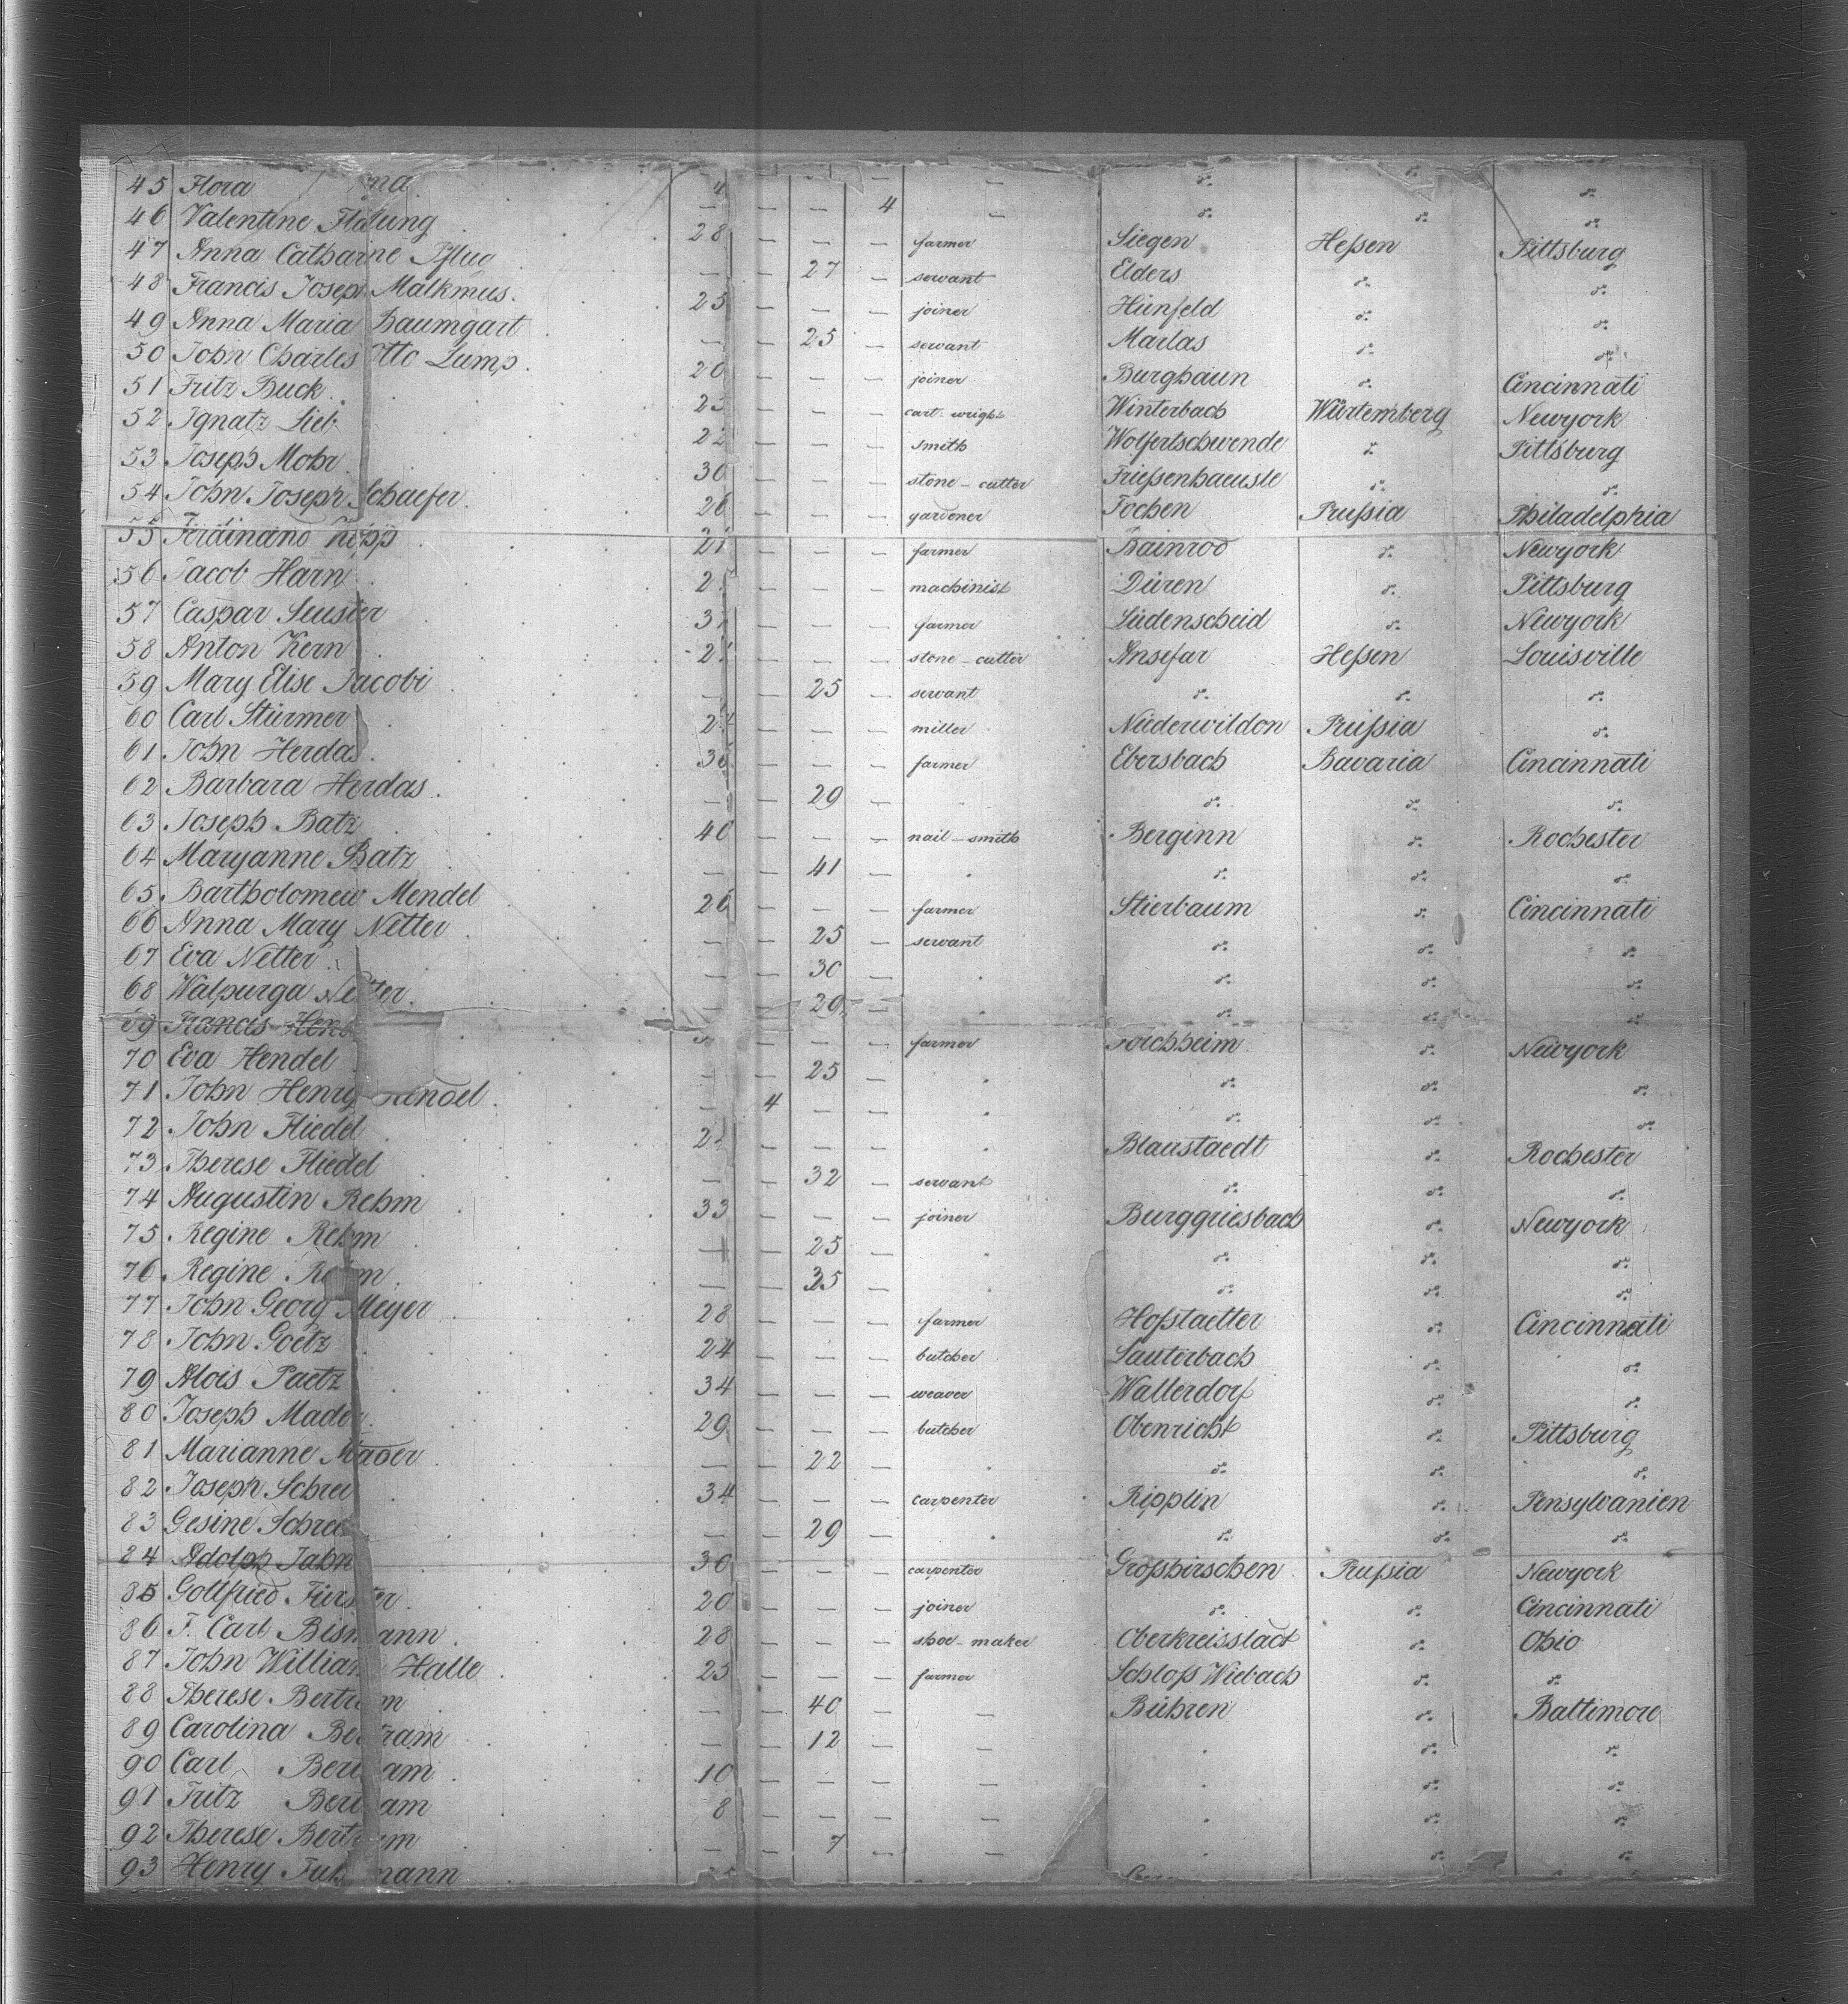 45 Flora 4 — — — — do. do. do.
46 Valentine Flatung 28 — — — farmer Siegen Heſsen Pittsburg
47 Anna Catharine Pflug — — 27 — servant Elders do. do.
48 Francis Joseph Malkmus. 25 — — — joiner Hünfeld do. do.
49 Anna Maria Baumgart — — 25 — servant Marlas do. do.
50 John Charles Otto Lump. 20 — — — joiner Burghaun do. Cincinnati
51 Fritz Buck. — — — cart-wright Winterbach Würtemberg Newyork
52 Ignatz Lieb — — — smith Wolfertschwende do. Pittsburg
53 Joseph Mohr 30 — — — stone-cutter Frieſsenhaeusle do. do.
54 John Joseph Schaefer. 26 — — — gardener Fochen Pruſsia Philadelphia
55 Ferdinand Topp — — — farmer Bainrod do. Newyork
56 Jacob Harn — — — machinist Düren do. Pittsburg
57 Caspar Seuster — — — farmer Lüdenscheid do. Newyork
58 Anton Kern — — — stone-cutter Ansefar Heſsen Louisville
59 Mary Elise Jacobi — — 25 — servant do. do. do.
60 Carl Stürmer — — — miller Niederwildon Pruſsia do.
61 John Herdas. 36 — — — farmer Ebersbach Bavaria Cincinnati
62 Barbara Herdas. — — 29 — do. do. do.
63 Joseph Batz 40 — — — nail-smith Berginn do. Rochester
64 Maryanne Batz — — 41 — do. do. do.
65 Bartholomew Mendel 26 — — — farmer Stierbaum do. Cincinnati
66 Anna Mary Netter — — 25 — servant do. do. do.
67 Eva Netter — — 30 — do. do. do.
68 Walpurga Netter. — — 29 — do. do. do.
69 Francis — — — farmer Forchheim do. Newyork
70 Eva Hendel — — 25 — do. do. do.
71 John Henry Hendel. — 4 — — do. do. do.
72 John Fliedel — — — Blaustaedt do. Rochester
73 Therese Fliedel — — 32 — servant do. do. do.
74 Augustin Rehm 33 — — — joiner Burggriesbach do. Newyork
75 Regine Rehm — — 25 — do. do. do.
76 Regine Rehm. — — 35 — do. do. do.
77 John Georg Meyer 28 — — — farmer Hofstaetter do. Cincinnati
78 John Goetz 24 — — — butcher Lauterbach do. do.
79 Alois Paetz 34 — — — weaver Wallerdorf do. do.
80 Joseph Mader. 29 — — — butcher Obenricht do. Pittsburg
81 Marianne Mader. — — 22 — do. do. do.
82 Joseph Schrei 34 — — — carpenter Ripplin do. Pensylvanien
83 Gesine Schrei — — 29 — do. do. do.
84 Adolph Jahn 30 — — — carpenter Groſshirschen Pruſsia Newyork
85 Gottfried Fürster. 20 — — — joiner do. do. Cincinnati
86 F. Carl Bismann. 28 — — — shoe-maker Oberkreisstadt do. Ohio
87 John William Halle 25 — — — farmer Schloſs Wiebach do. do.
88 Therese Bertram — — 40 — — Bühren do. Baltimore
89 Carolina Bertram — — 12 — — do. do.
90 Carl Bertram 10 — — — — do. do.
91 Fritz Bertram 8 — — — — do. do.
92 Therese Bertram — — 7 — — do. do.
93 Henry Fuhrmann